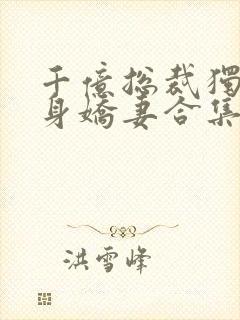 千億總裁獨
身嬌妻合集
洪雪峰